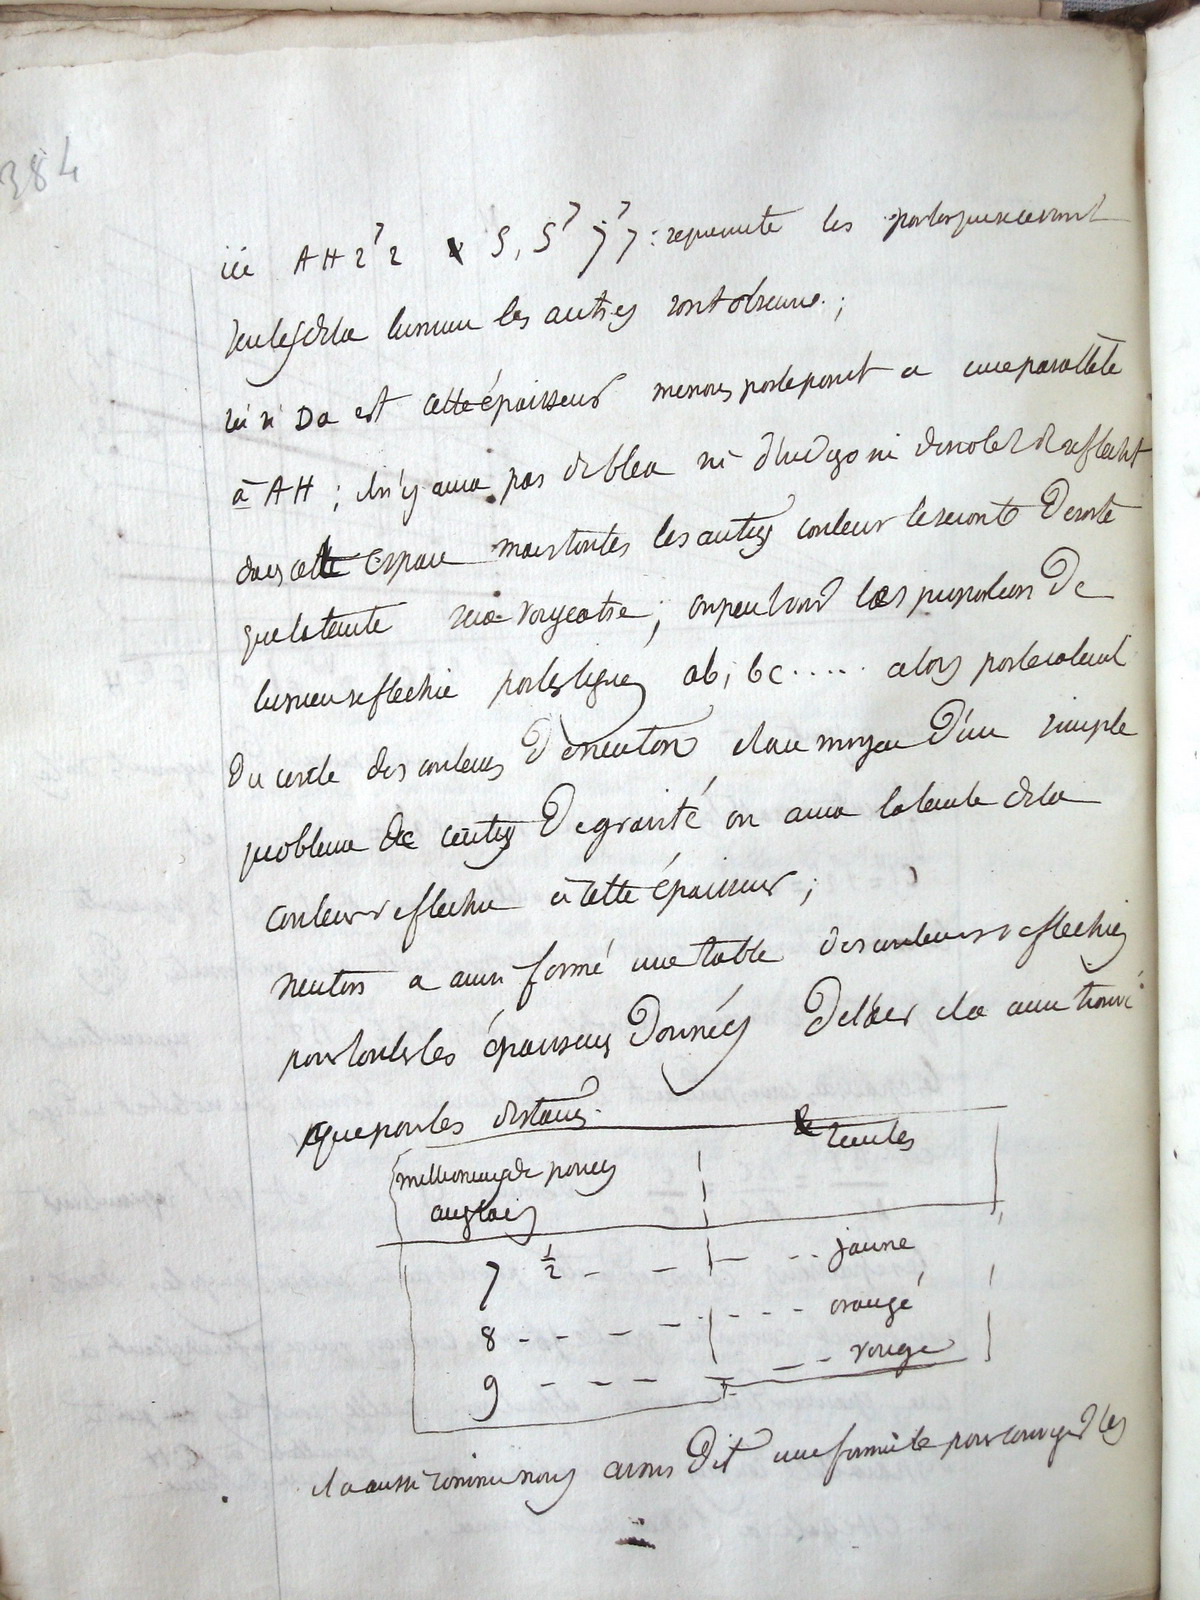 384
ici AH 2' 2 S, S' 7' 7 : represente les parties qui recevront
seules de la lumiere les autres sont obscures ;
ici si Da est cette épaisseur menons par le point a une parallele
à AH ; il n'y aura pas de bleu ni d'indigo ni de violet de reflechit
dans cette espace mais toutes les autres couleur le seront De sorte
que la teinte sera rougeatre ; on peut voir les proportions De
lumiere reflechie par les lignes ab, bc ..... alors par le calcul
Du cercle des couleurs De neuton et au moyen D'un simple
probleme de centre De gravité on aura la teinte de la
couleur reflechie à cette épaisseur ;
neuton a aussi formé une table des couleurs reflechies
pour toutes les épaisseurs Données De l'air il a ainsi trouvé
que pour les distances
millioniemes de pouces teintes
anglais
7 1/2 - - - - - jaune
8 - - - - - - - - orangé
9 - - - - - - rouge
il a aussi comme nous avons Dit une formule pour corriger les